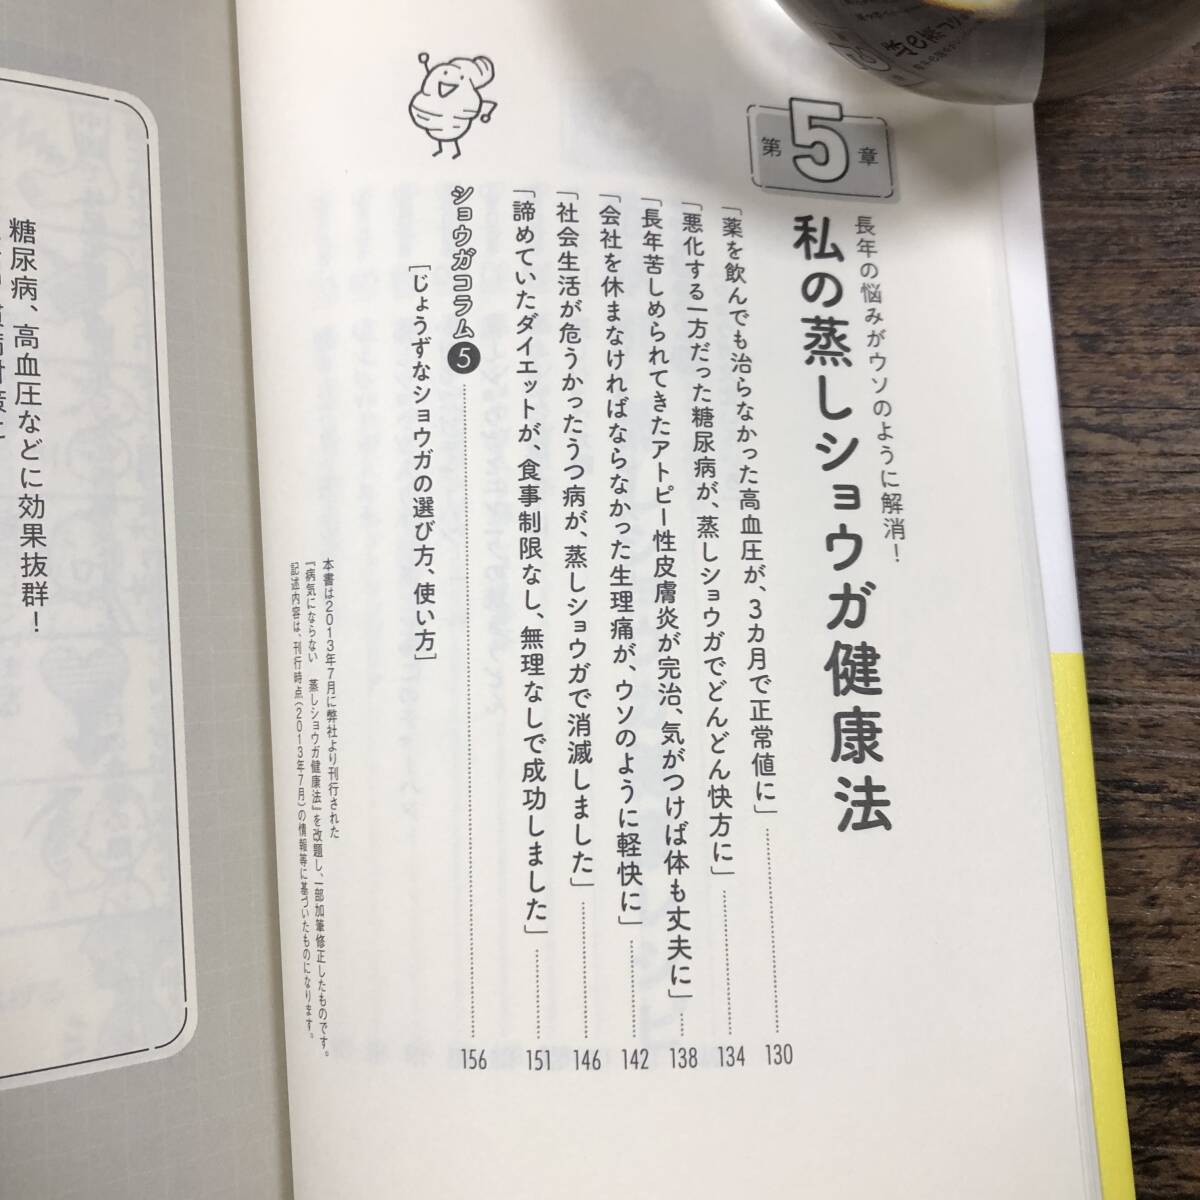 第5章
長年の悩みがウソのように解消！
私の蒸しショウガ健康法
「薬を飲んでも治らなかった高血圧が、3カ月で正常値に」 130
「悪化する一方だった糖尿病が、蒸しショウガでどんどん快方に」 134
「長年苦しめられてきたアトピー性皮膚炎が完治、気がつけば体も丈夫に」 138
「会社を休まなければならなかった生理痛が、ウソのように軽快に」 142
「社会生活が危うかったうつ病が、蒸しショウガで消滅しました」 146
「諦めていたダイエットが、食事制限なし、無理なしで成功しました」 151
ショウガコラム5 156
［じょうずなショウガの選び方、使い方］
本書は2013年7月に弊社より刊行された
『病気にならない 蒸しショウガ健康法』を改題し、一部加筆修正したものです。
記述内容は、刊行時点（2013年7月）の情報等に基づいたものになります。
糖尿病、高血圧などに効果抜群！